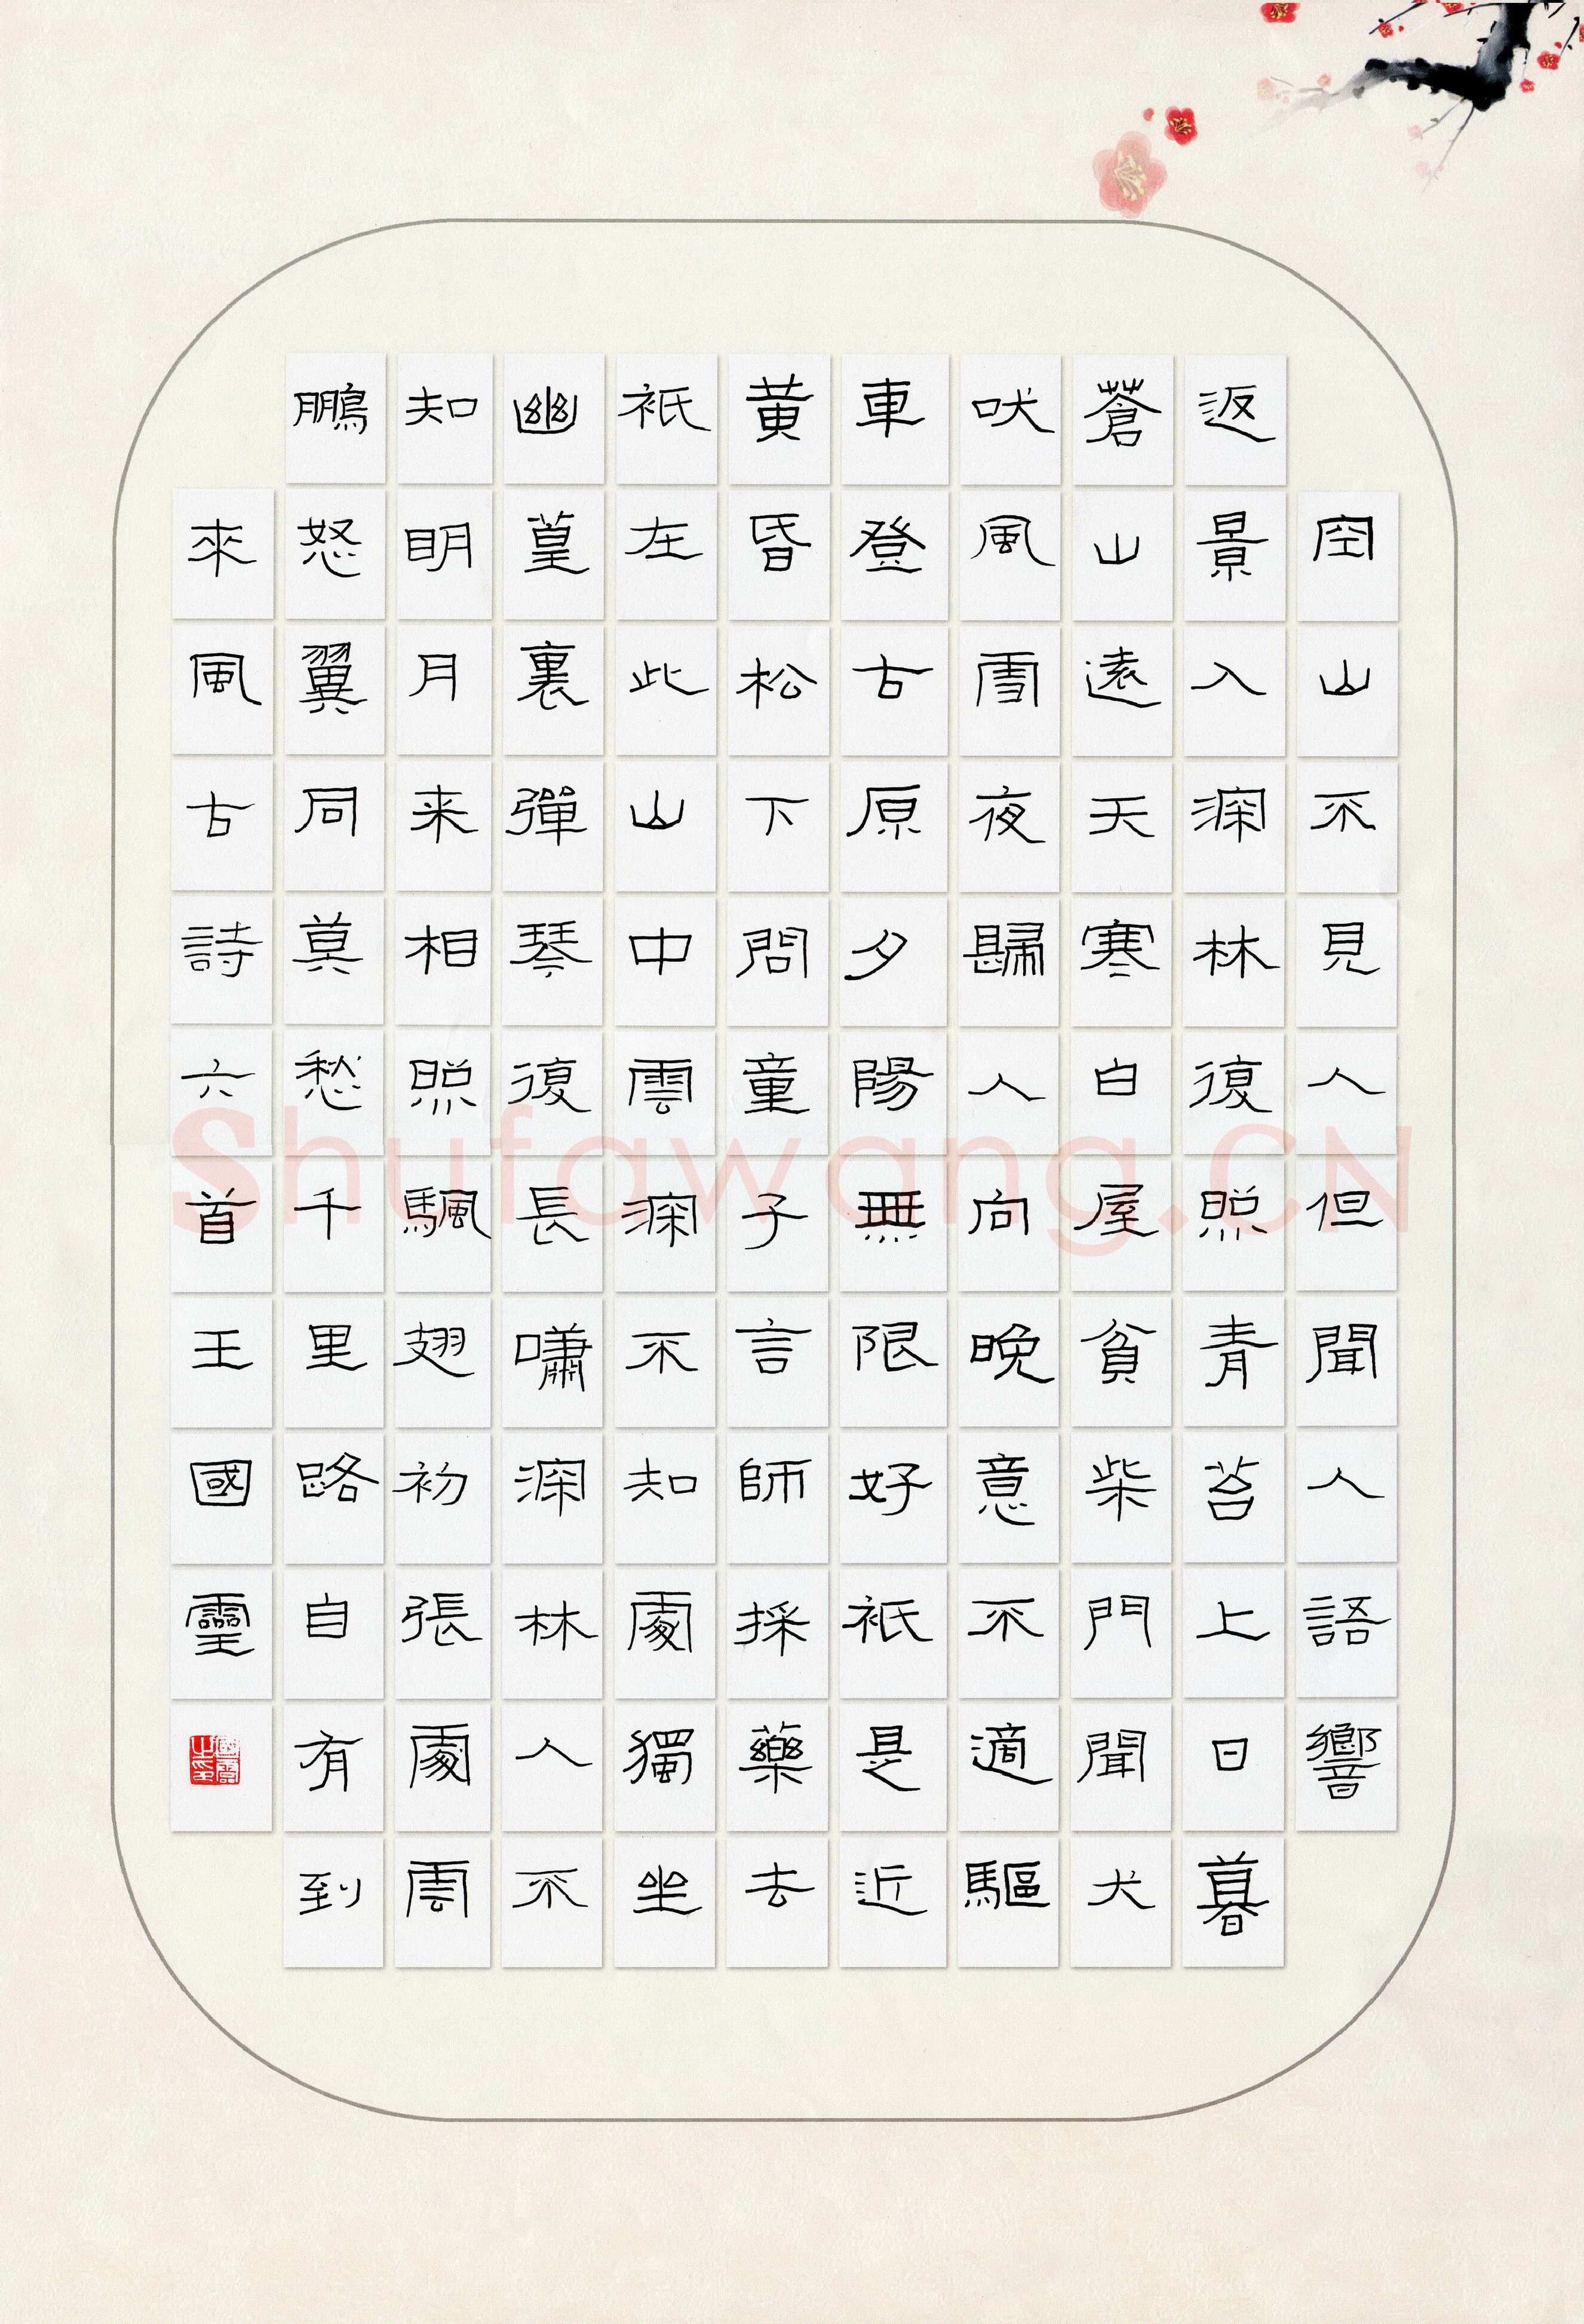 空山不見人但聞人語響
返景入深林復照青苔上日暮
蒼山遠天寒白屋貧柴門聞犬
吠風雪夜歸人向晚意不適驅
車登古原夕陽無限好衹是近
黄昏松下問童子言師採藥去
衹在此山中雲深不知處獨坐
幽篁裏彈琴復長嘯深林人不
知明月来相照颿翅初張處雲
鵬怒翼同莫愁千里路自有到
來風古詩六首王國靈
國靈之印
Shufawang.CN